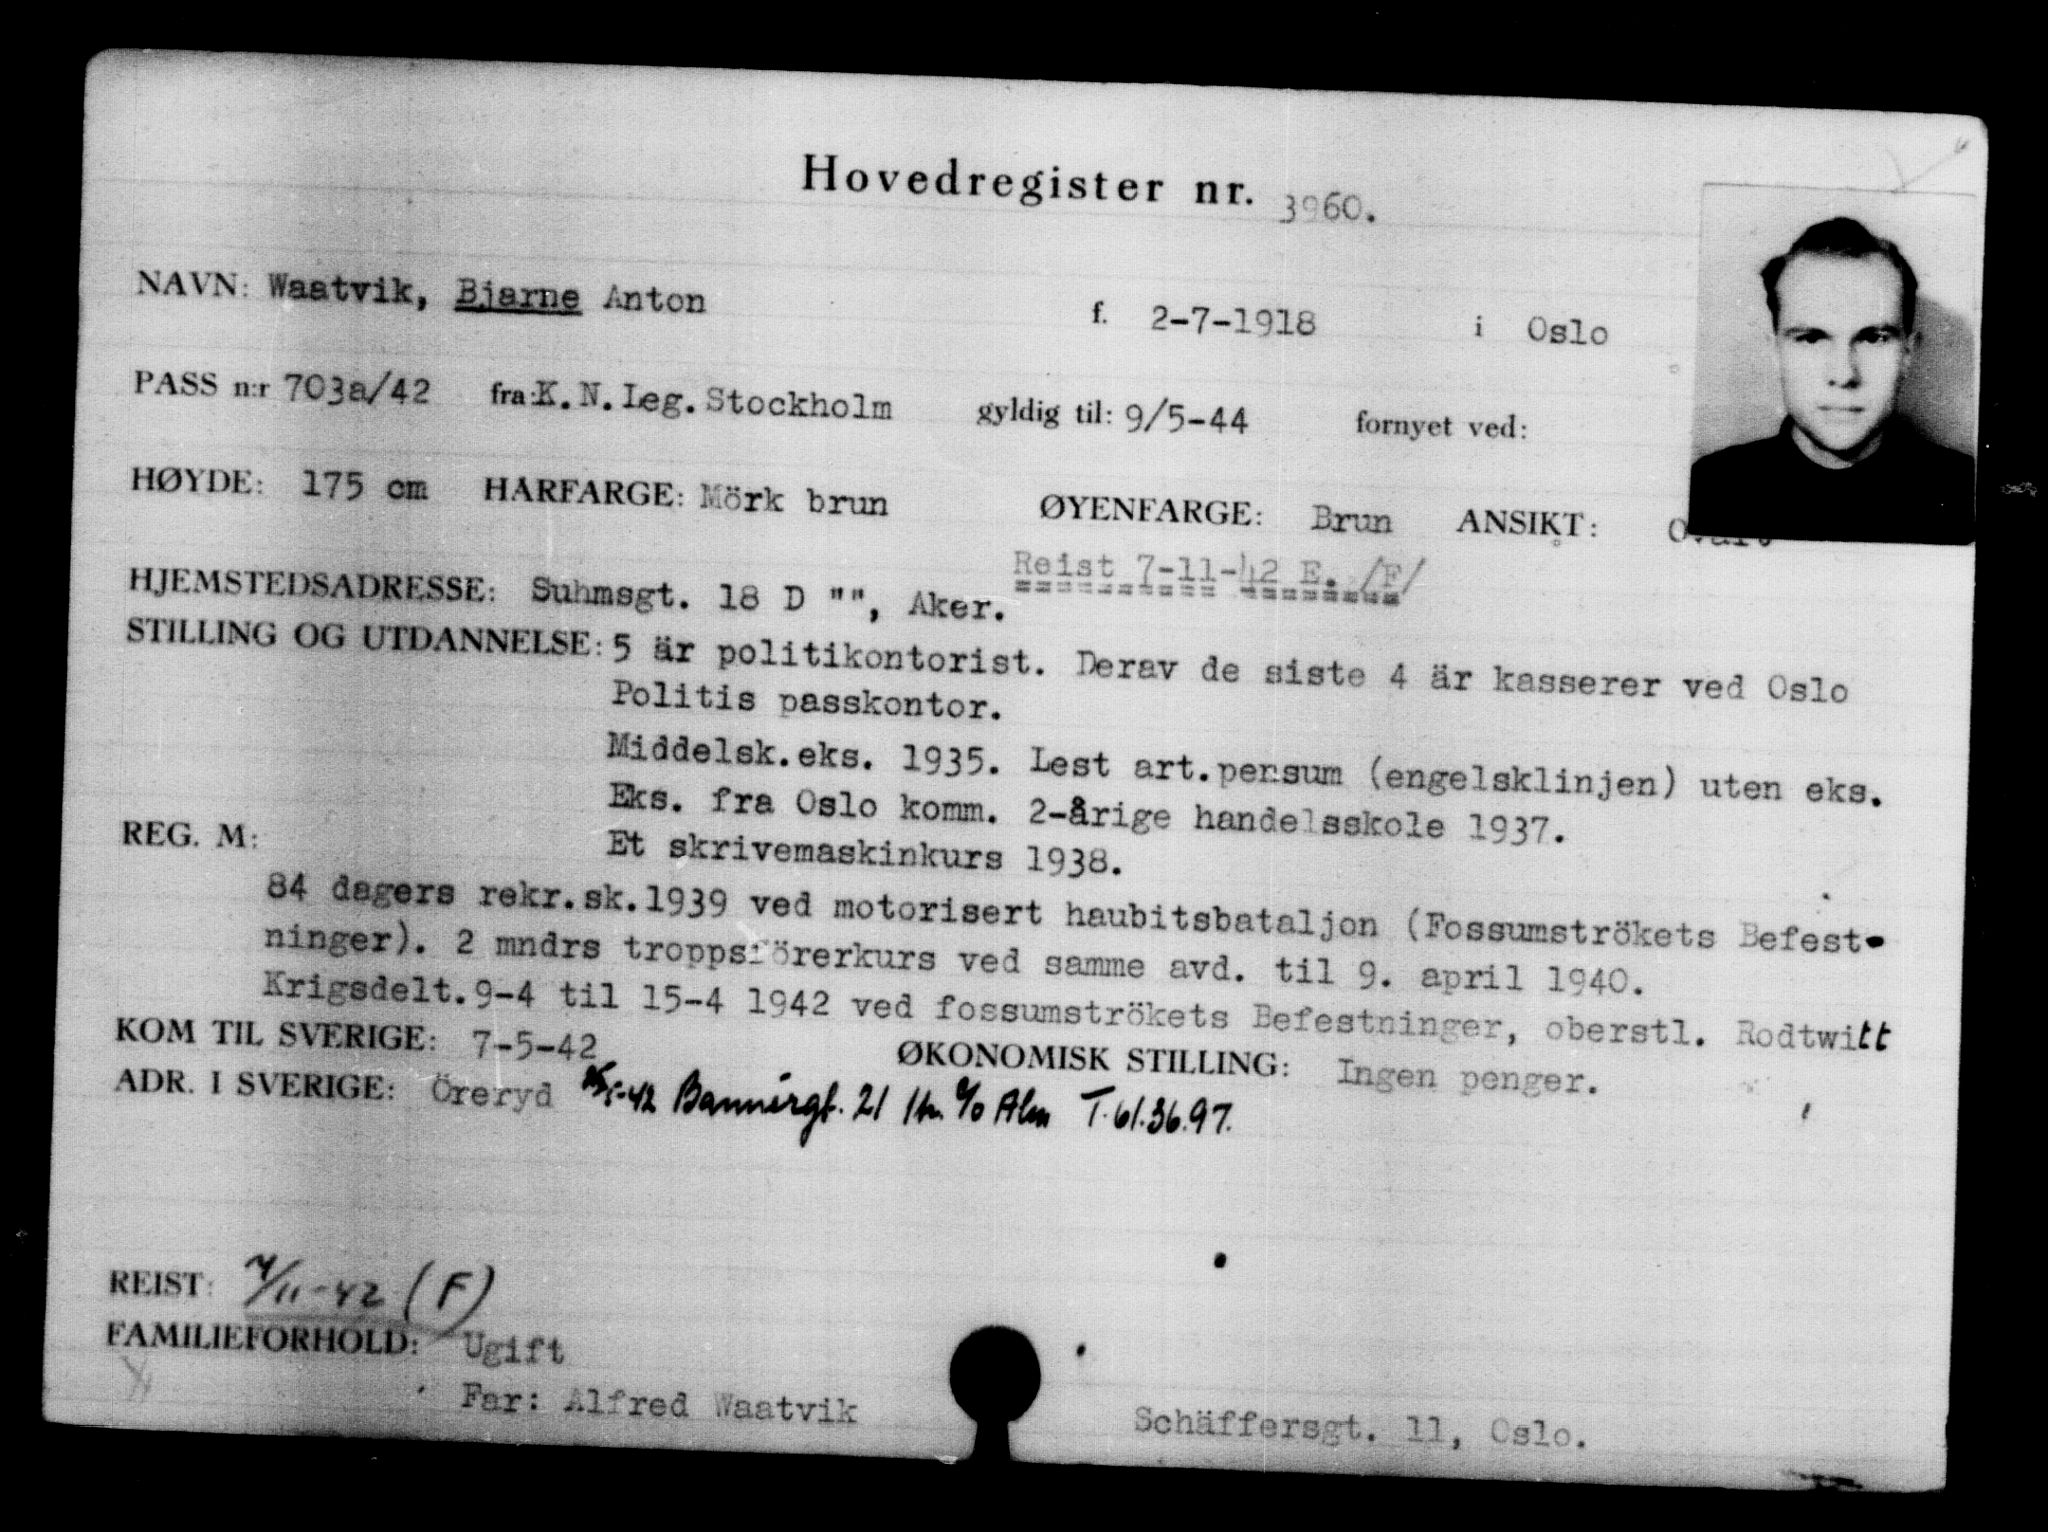 Hovedregister nr. 3960.
NAVN: Waatvik, Bjarne Anton f. 2-7-1918 i Oslo
PASS n:r 703a/42 fra: K.N.Leg.Stockholm gyldig til: 9/5-44 fornyet ved:
HØYDE: 175 cm HÅRFARGE: Mörk brun ØYENFARGE: Brun ANSIKT:
Reist 7-11-42 E. /F/
HJEMSTEDSADRESSE: Suhmsgt. 18 D "", Aker.
STILLING OG UTDANNELSE: 5 är politikontorist. Derav de siste 4 är kasserer ved Oslo
Politis passkontor.
Middelsk.eks. 1935. Lest art.pensum (engelsklinjen) uten eks.
Eks. fra Oslo komm. 2-årige handelsskole 1937.
REG. M: Et skrivemaskinkurs 1938.
84 dagers rekr.sk.1939 ved motorisert haubitsbataljon (Fossumströkets Befest-
ninger). 2 mndrs troppsförerkurs ved samme avd. til 9. april 1940.
Krigsdelt.9-4 til 15-4 1942 ved fossumströkets Befestninger, oberstl. Rodtwitt
KOM TIL SVERIGE: 7-5-42 ØKONOMISK STILLING: Ingen penger.
ADR. I SVERIGE: Öreryd Bannérgt. 21 c/o Alm T.61.36.97.
REIST: 7/11-42 (F)
FAMILIEFORHOLD: Ugift
Far: Alfred Waatvik Schäffersgt. 11, Oslo.